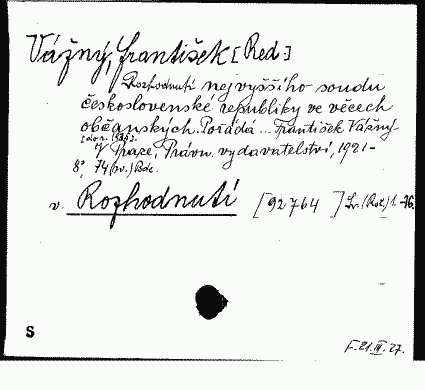 Vážný, František [Red.]
Rozhodnutí nejvyššího soudu
československé republiky ve věcech
občanských. Pořádá ... František Vážný
V Praze, Právn. vydavatelství, 1921-
8°, 74 (sv.)
v. Rozhodnutí [92764] Sv. (Roč.) 1.-16.
S
F. 21. III. 27.